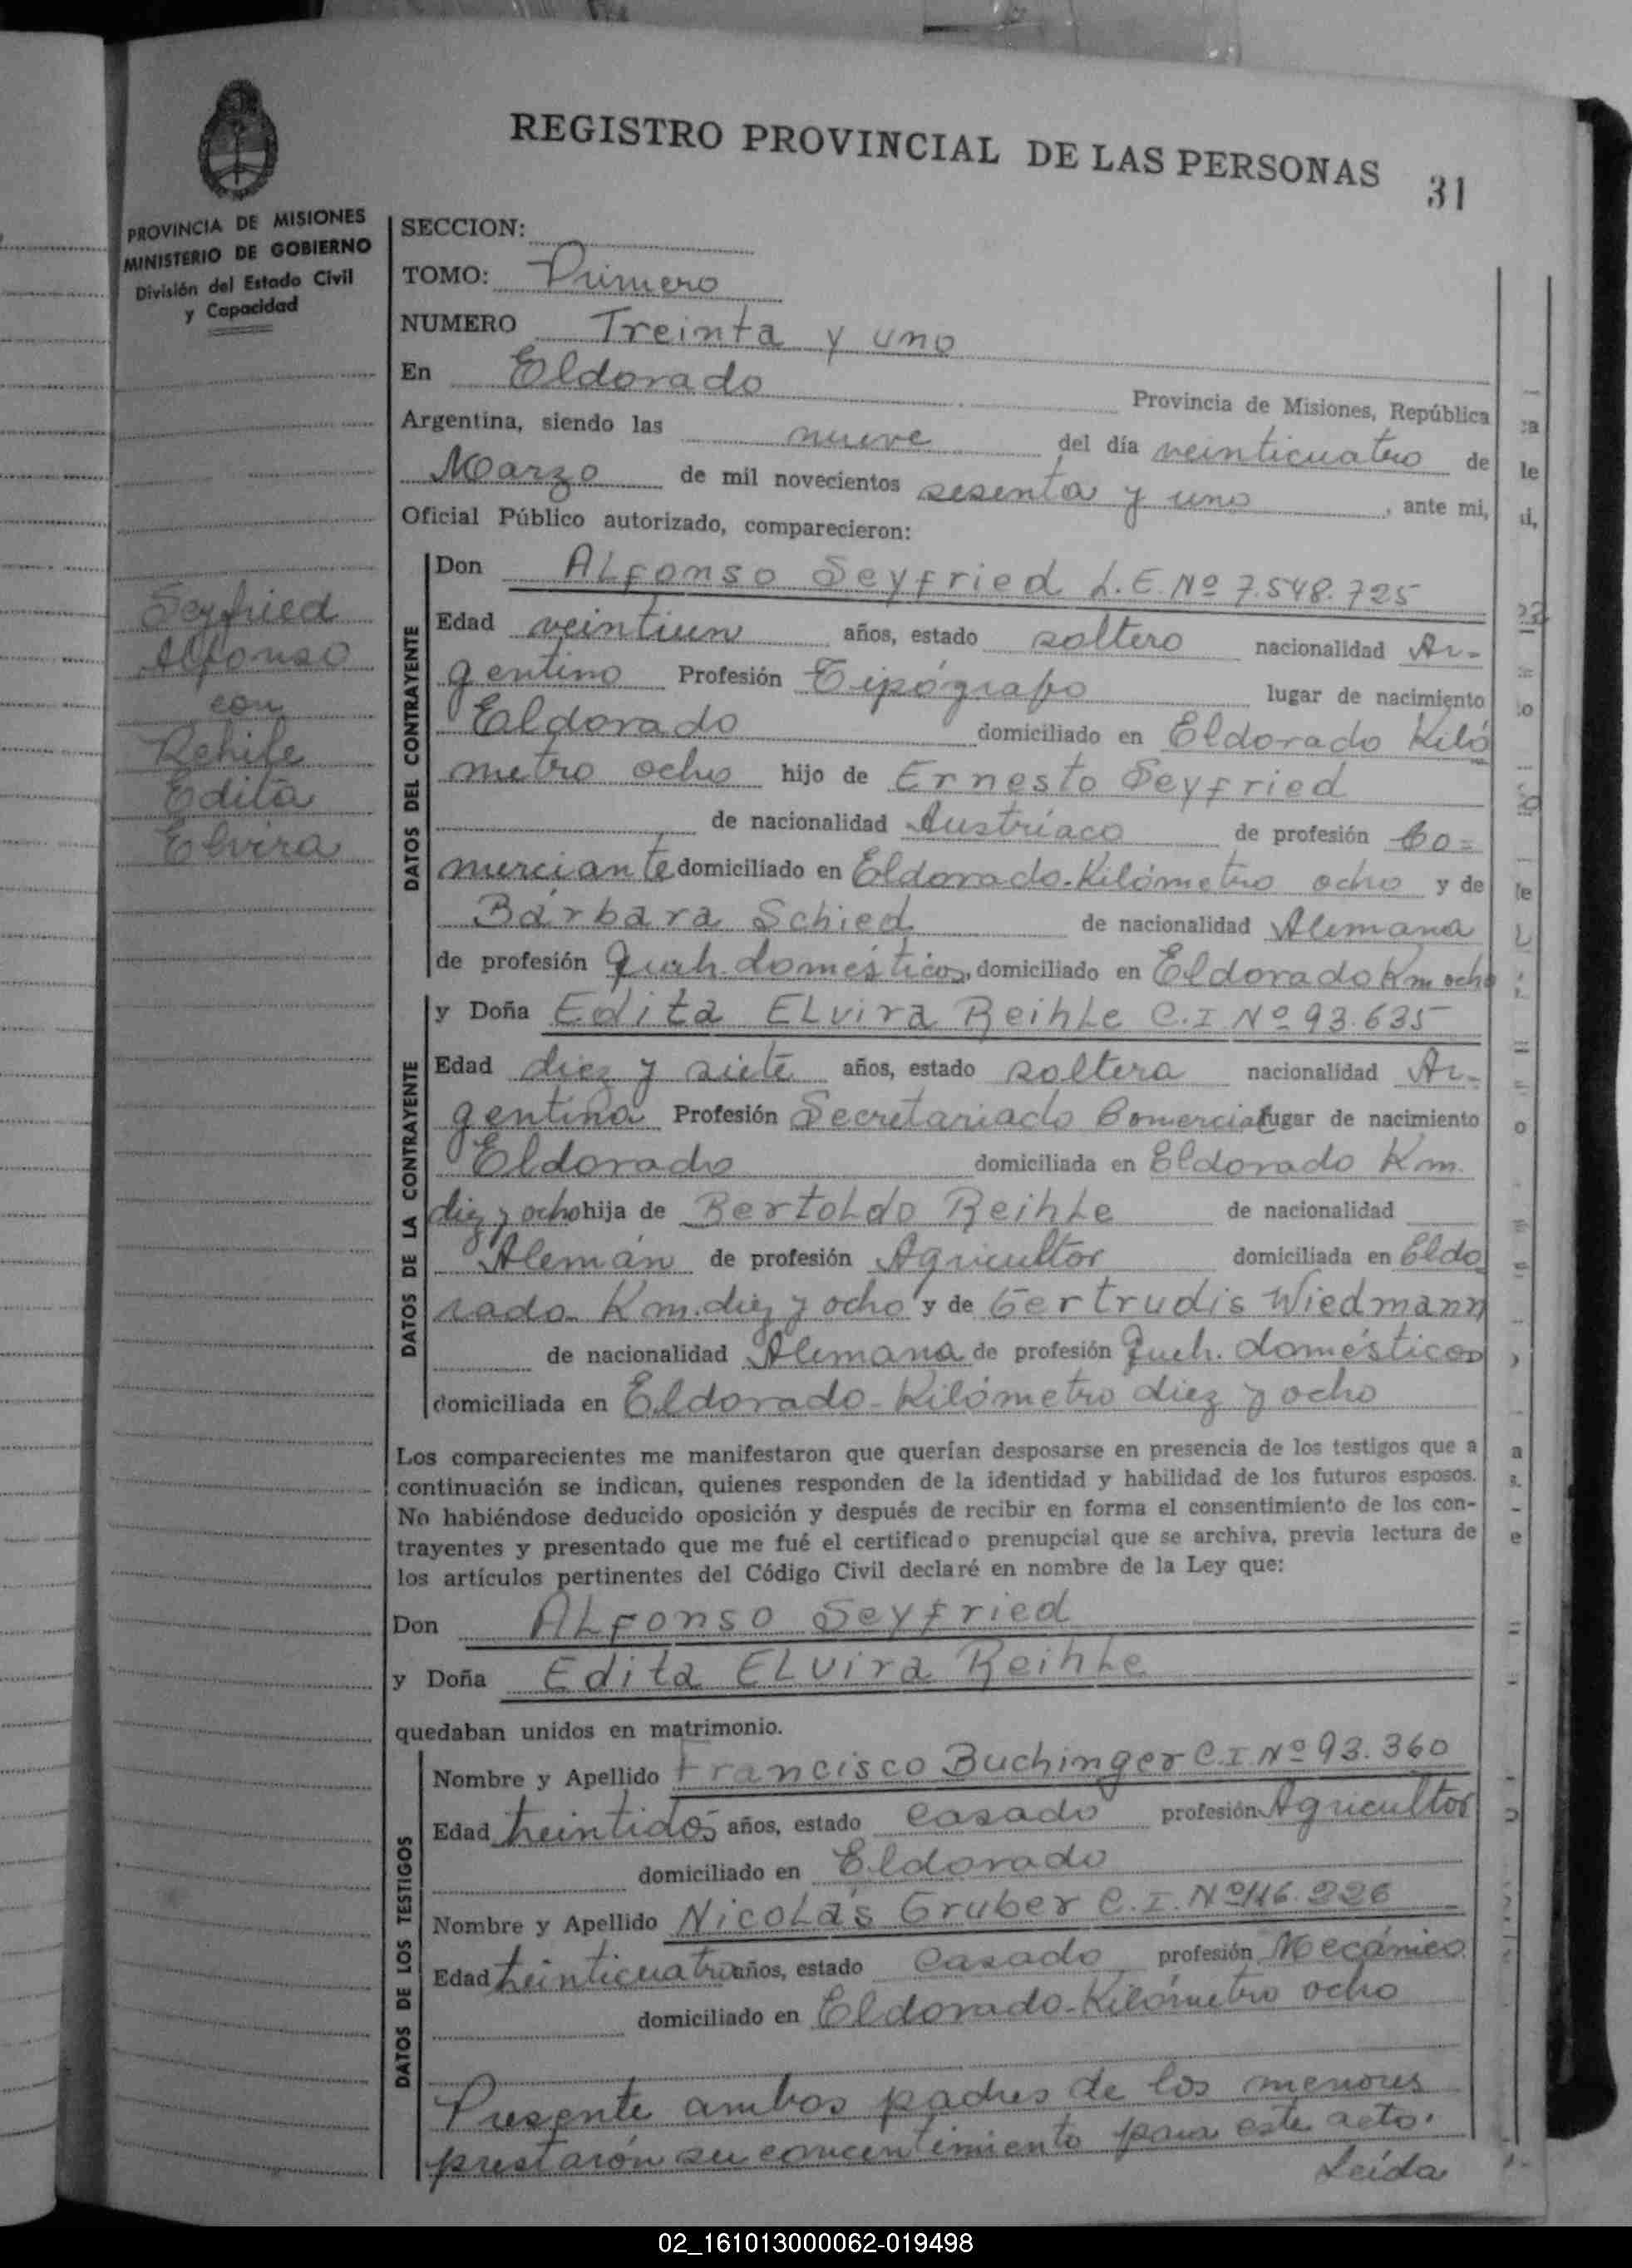 REGISTRO PROVINCIAL DE LAS PERSONAS
31
PROVINCIA DE MISIONES
MINISTERIO DE GOBIERNO
División del Estado Civil
y Capacidad
SECCION:
TOMO: Primero
NUMERO Treinta y uno
En Eldorado Provincia de Misiones, República
Argentina, siendo las nueve del día veinticuatro de
Marzo de mil novecientos sesenta y uno, ante mi,
Oficial Público autorizado, comparecieron:
Seyfried
Alfonso
con
Rehile
Edita
Elvira
DATOS DEL CONTRAYENTE
Don ALfonso Seyfried L.E. Nº 7.548.725
Edad veintiun años, estado soltero nacionalidad Ar-
gentino Profesión Tipógrafo lugar de nacimiento
Eldorado domiciliado en Eldorado Kiló
metro ocho hijo de Ernesto Seyfried
de nacionalidad Austríaco de profesión Co=
merciante domiciliado en Eldorado-Kilómetro ocho y de
Bárbara Schied de nacionalidad Alemana
de profesión domésticos, domiciliado en Eldorado Km ocho
DATOS DE LA CONTRAYENTE
y Doña Edita ELvira Reihle C.I Nº 93.635
Edad diez y siete años, estado soltera nacionalidad Ar-
gentina Profesión Secretariado Comercial lugar de nacimiento
Eldorado domiciliada en Eldorado Km.
diez y ocho hija de Bertoldo Reihle de nacionalidad
Alemán de profesión Agricultor domiciliada en Eldo
rado Km. diez y ocho y de Gertrudis Wiedmann
de nacionalidad Alemana de profesión Queh. domésticos
domiciliada en Eldorado-Kilómetro diez y ocho
Los comparecientes me manifestaron que querían desposarse en presencia de los testigos que a
continuación se indican, quienes responden de la identidad y habilidad de los futuros esposos.
No habiéndose deducido oposición y después de recibir en forma el consentimiento de los con-
trayentes y presentado que me fué el certificado prenupcial que se archiva, previa lectura de
los artículos pertinentes del Código Civil declaré en nombre de la Ley que:
Don ALfonso Seyfried
y Doña Edita ELvira Reihle
quedaban unidos en matrimonio.
DATOS DE LOS TESTIGOS
Nombre y Apellido Francisco Buchinger C.I Nº 93.360
Edad treintidós años, estado casado profesión Agricultor
domiciliado en Eldorado
Nombre y Apellido Nicolás Gruber C.I. Nº 116.226
Edad treinticuatro años, estado Casado profesión Mecánico
domiciliado en Eldorado-Kilómetro ocho
Presente ambos padres de los menores
prestarón su concentimiento para este acto.
Leída
02_161013000062-019498